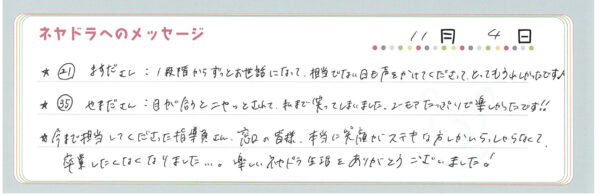 ネヤドラへのメッセージ
11月 4日
★ ㉑ ますださん：1段階からずっとお世話になって、担当でない日も声をかけてくださって、とってもうれしかったです♪
★ ㉟ やまださん：目が合うとニヤッとされて、私まで笑ってしまいました。ユーモアたっぷりで楽しかったです!!
★今まで担当してくださった指導員さん、窓口の皆様、本当に笑顔がステキな方しかいらっしゃらなくて、
卒業したくなくなりました…。楽しいネヤドラ生活をありがとうございました！